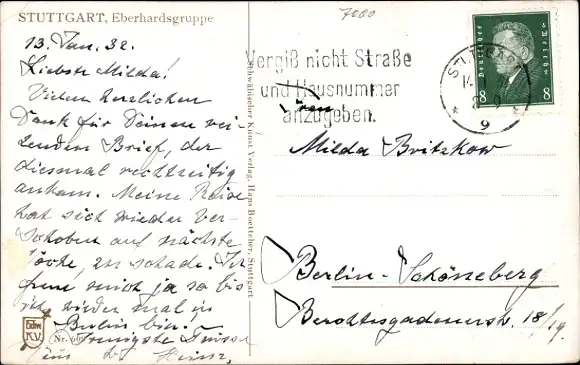 STUTTGART, Eberhardsgruppe
13. Jan. 32.
Liebste Milda!
Vielen herzlichen
Dank für Deinen rei-
zenden Brief, der
diesmal rechtzeitig
ankam. Meine Reise
hat sich wieder ver-
schoben auf nächste
Woche, zu schade. Ich
freue mich ja so bis
ich wieder mal in
Berlin bin.
Innigste Grüsse
Heinz.
Nr.
Schwäbischer Kunst Verlag, Hans Boettcher, Stuttgart
7000
Vergiß nicht Straße
und Hausnummer
anzugeben.
STUTTGART
9
Deutsches Reich
8 8
Milda Britzkow
Berlin-Schöneberg
Berchtesgadenerstr. 18/19.